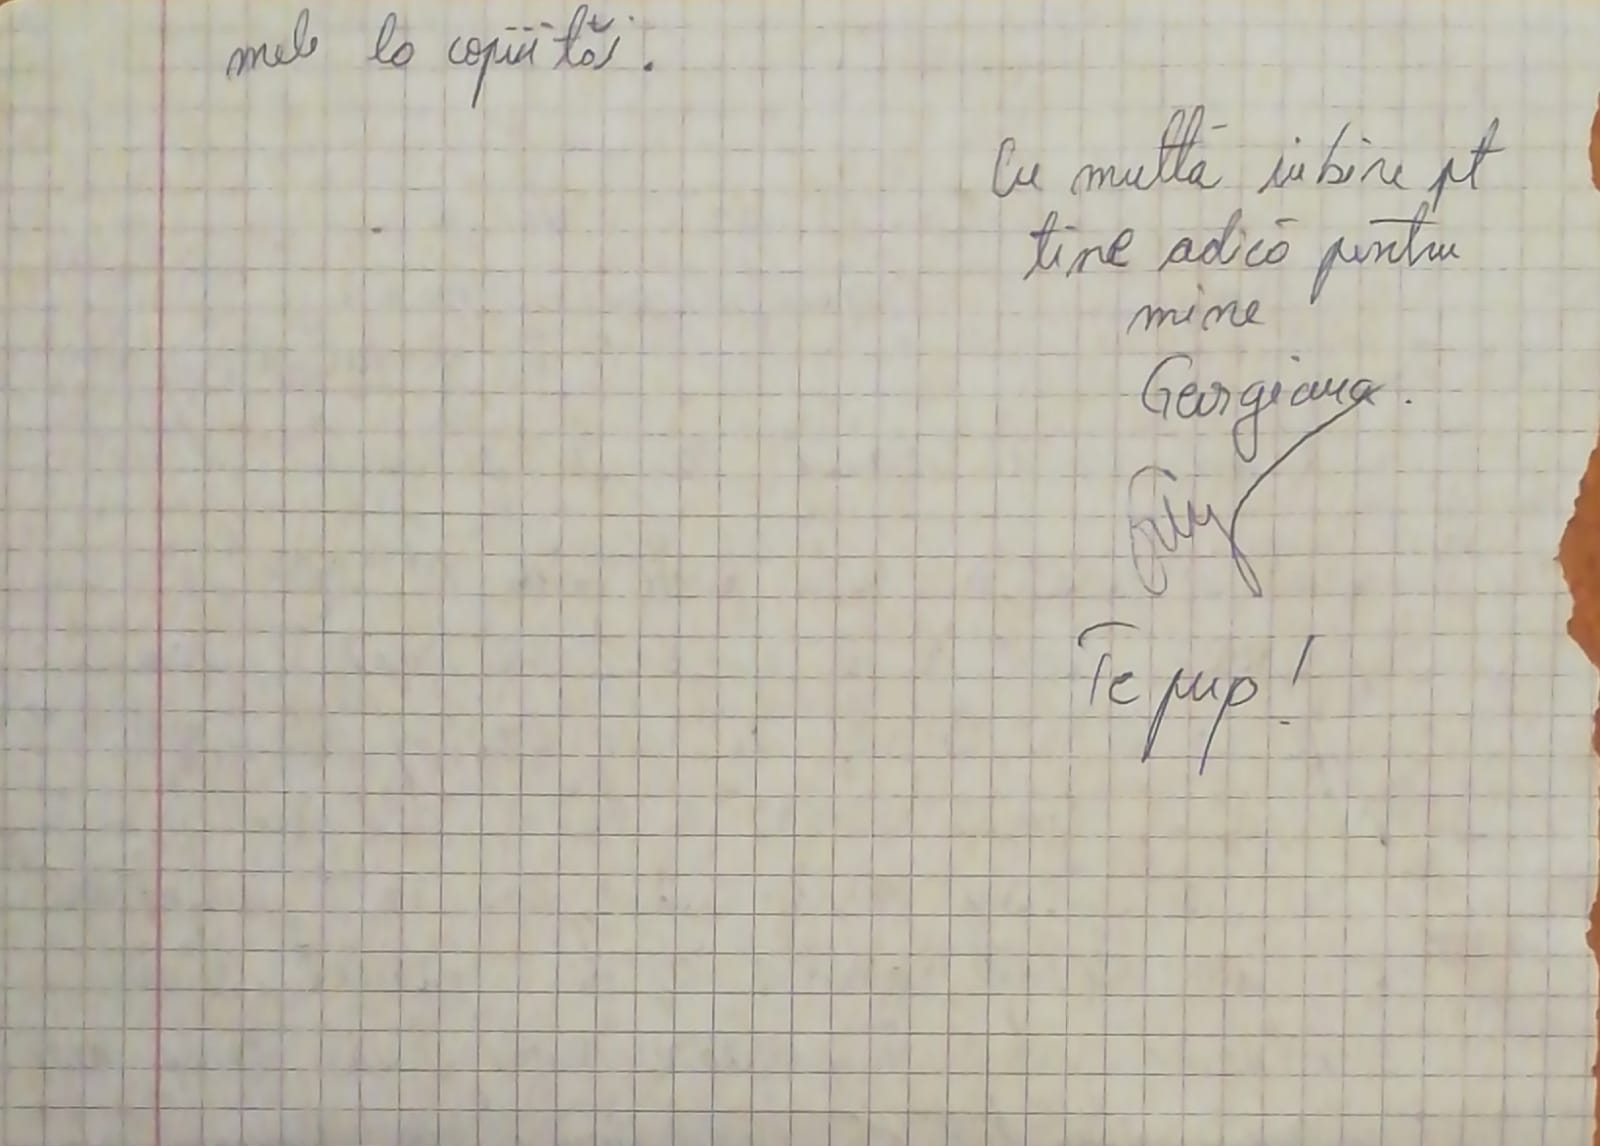 mele la copiii tăi.
Cu multă iubire pt
tine adică pentru
mine
Georgiana.
Te pup!